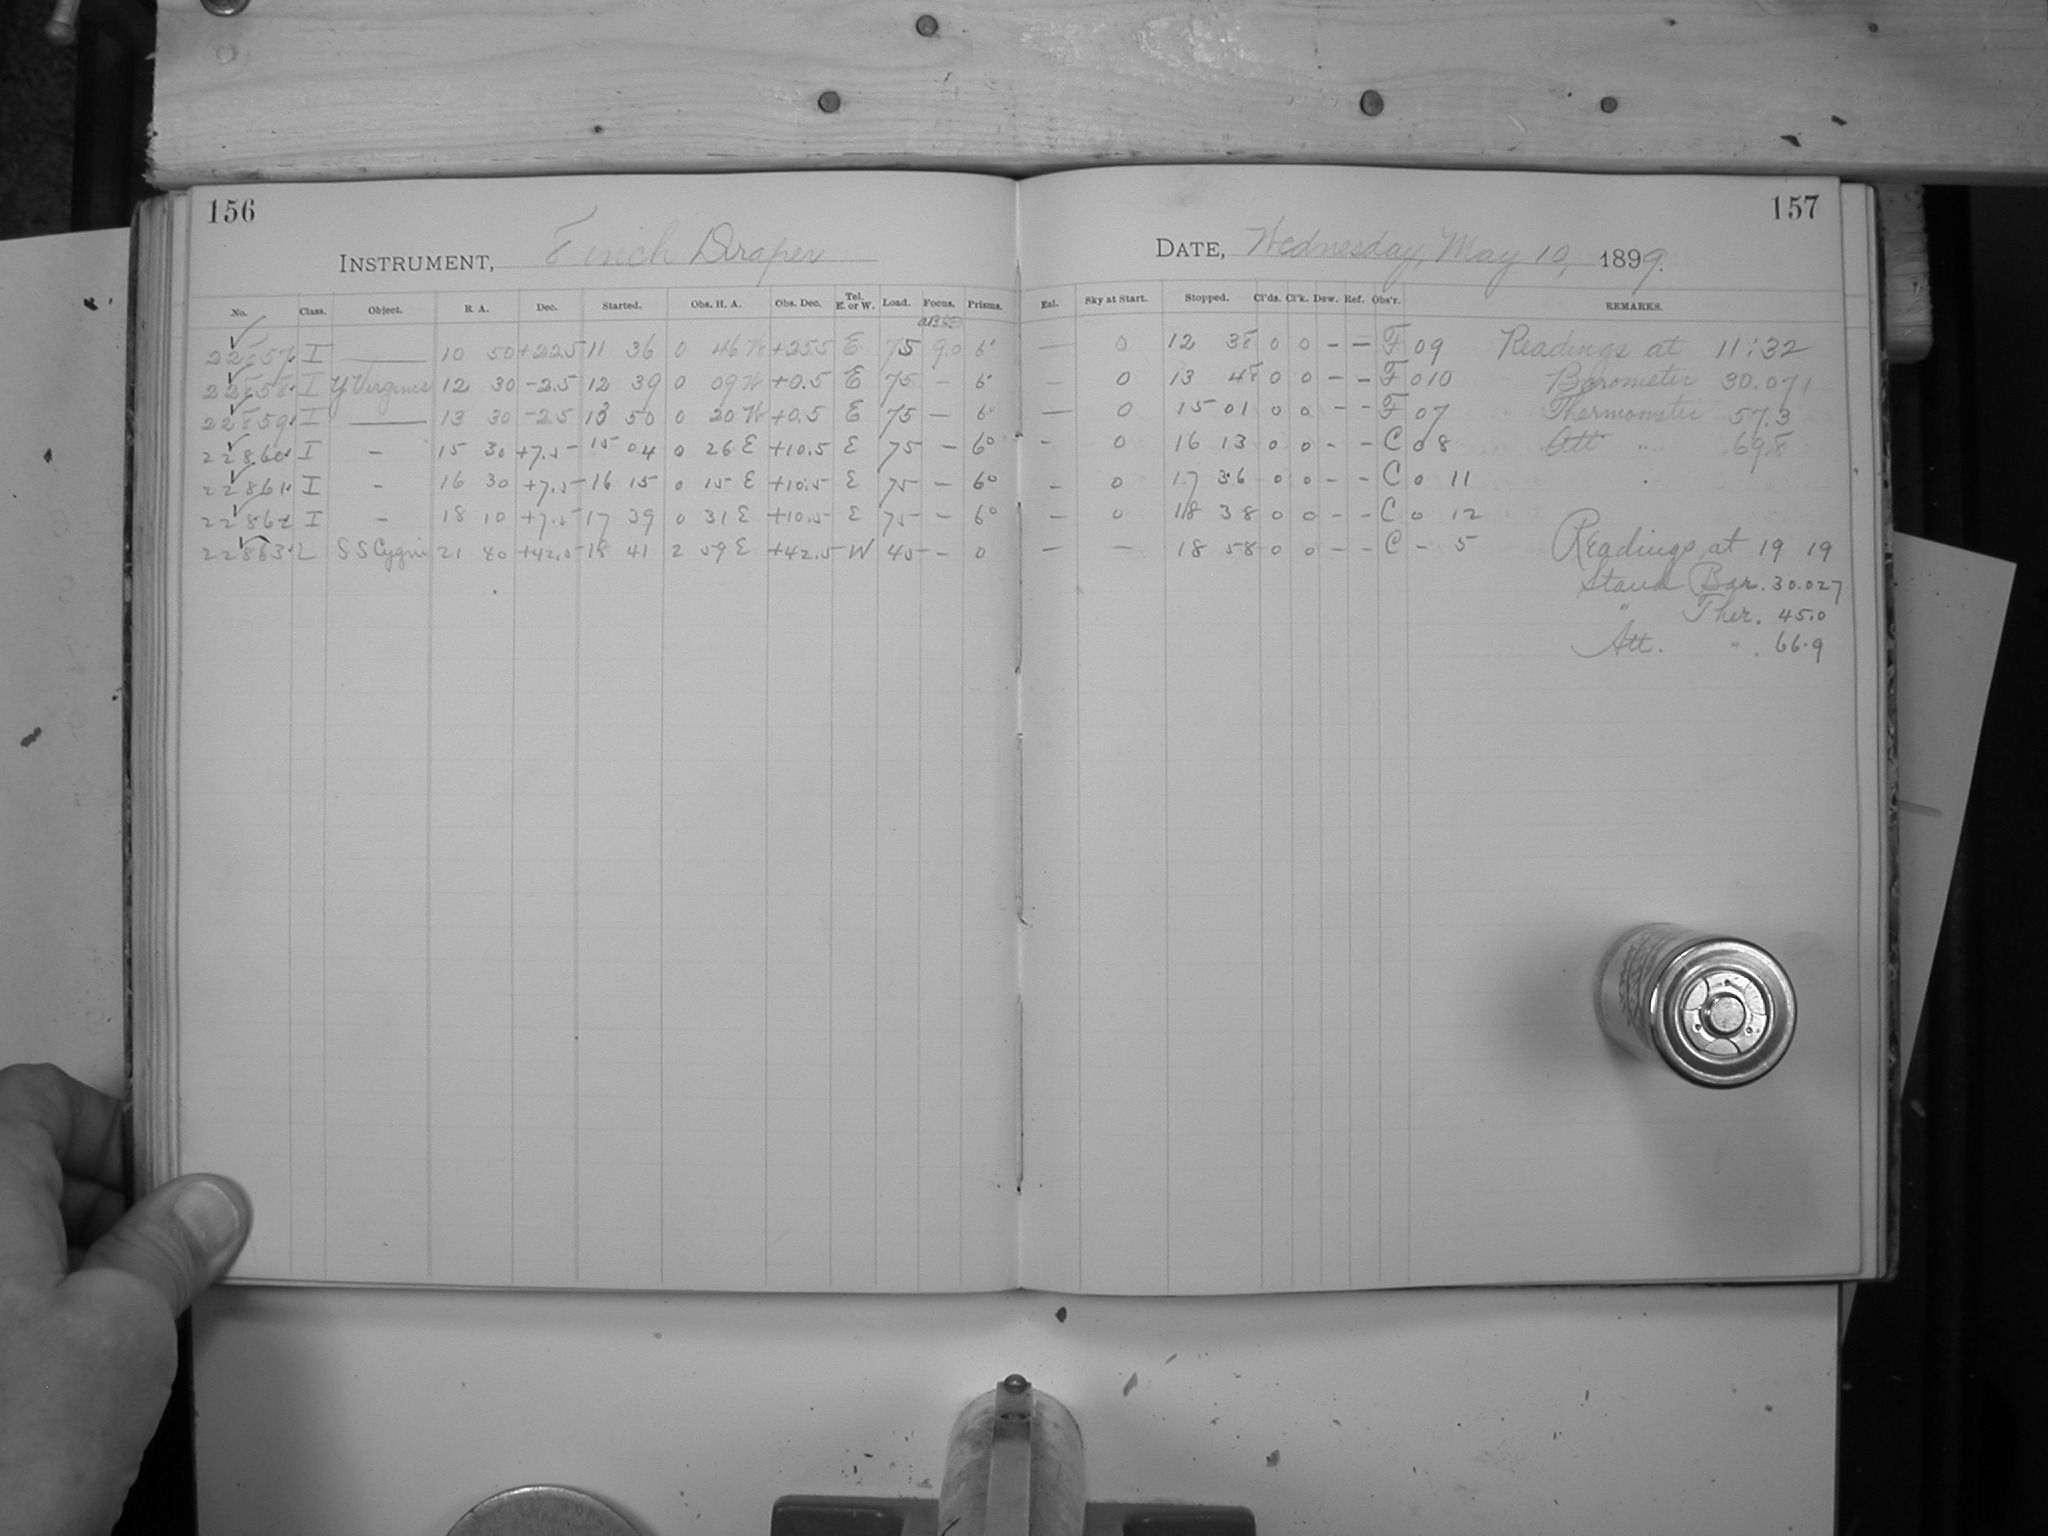 156
INSTRUMENT, 8 inch Draper
No. Class. Object. R. A. Dec. Started. Obs. H. A. Obs. Dec. Tel. E. or W. Load. Focus. Prisms.
22857 I — 10 50 +22.5 11 36 0 46 W +25.5 E 75 9.0 6°
22858 I Y Virginis 12 30 -2.5 12 39 0 09 W +0.5 E 75 — 6°
22859 I — 13 30 -2.5 13 50 0 20 W +0.5 E 75 — 6°
22860 I - 15 30 +7.5 15 04 0 26 E +10.5 E 75 - 6°
22861 I - 16 30 +7.5 16 15 0 15 E +10.5 E 75 - 6°
22862 I - 18 10 +7.5 17 39 0 31 E +10.5 E 75 - 6°
22863 L SS Cygni 21 40 +42.5 18 41 2 59 E +42.5 W 45 - 0
157
DATE, Wednesday, May 10, 1899.
Enl. Sky at Start. Stopped. Cl'ds. Cl'k. Dew. Ref. Obs'r. REMARKS.
— 0 12 38 0 0 - - F 09 Readings at 11:32
— 0 13 48 0 0 - - F 010 Barometer 30.071
— 0 15 01 0 0 - - F 07 Thermometer 57.3
- 0 16 13 0 0 - - C 0 8 Att " 69.8
- 0 17 36 0 0 - - C 0 11
- 0 18 38 0 0 - - C 0 12
— — 18 58 0 0 - - C - 5 Readings at 19 19
Stand Bar. 30.027
" Ther. 45.0
Att. " . 66.9